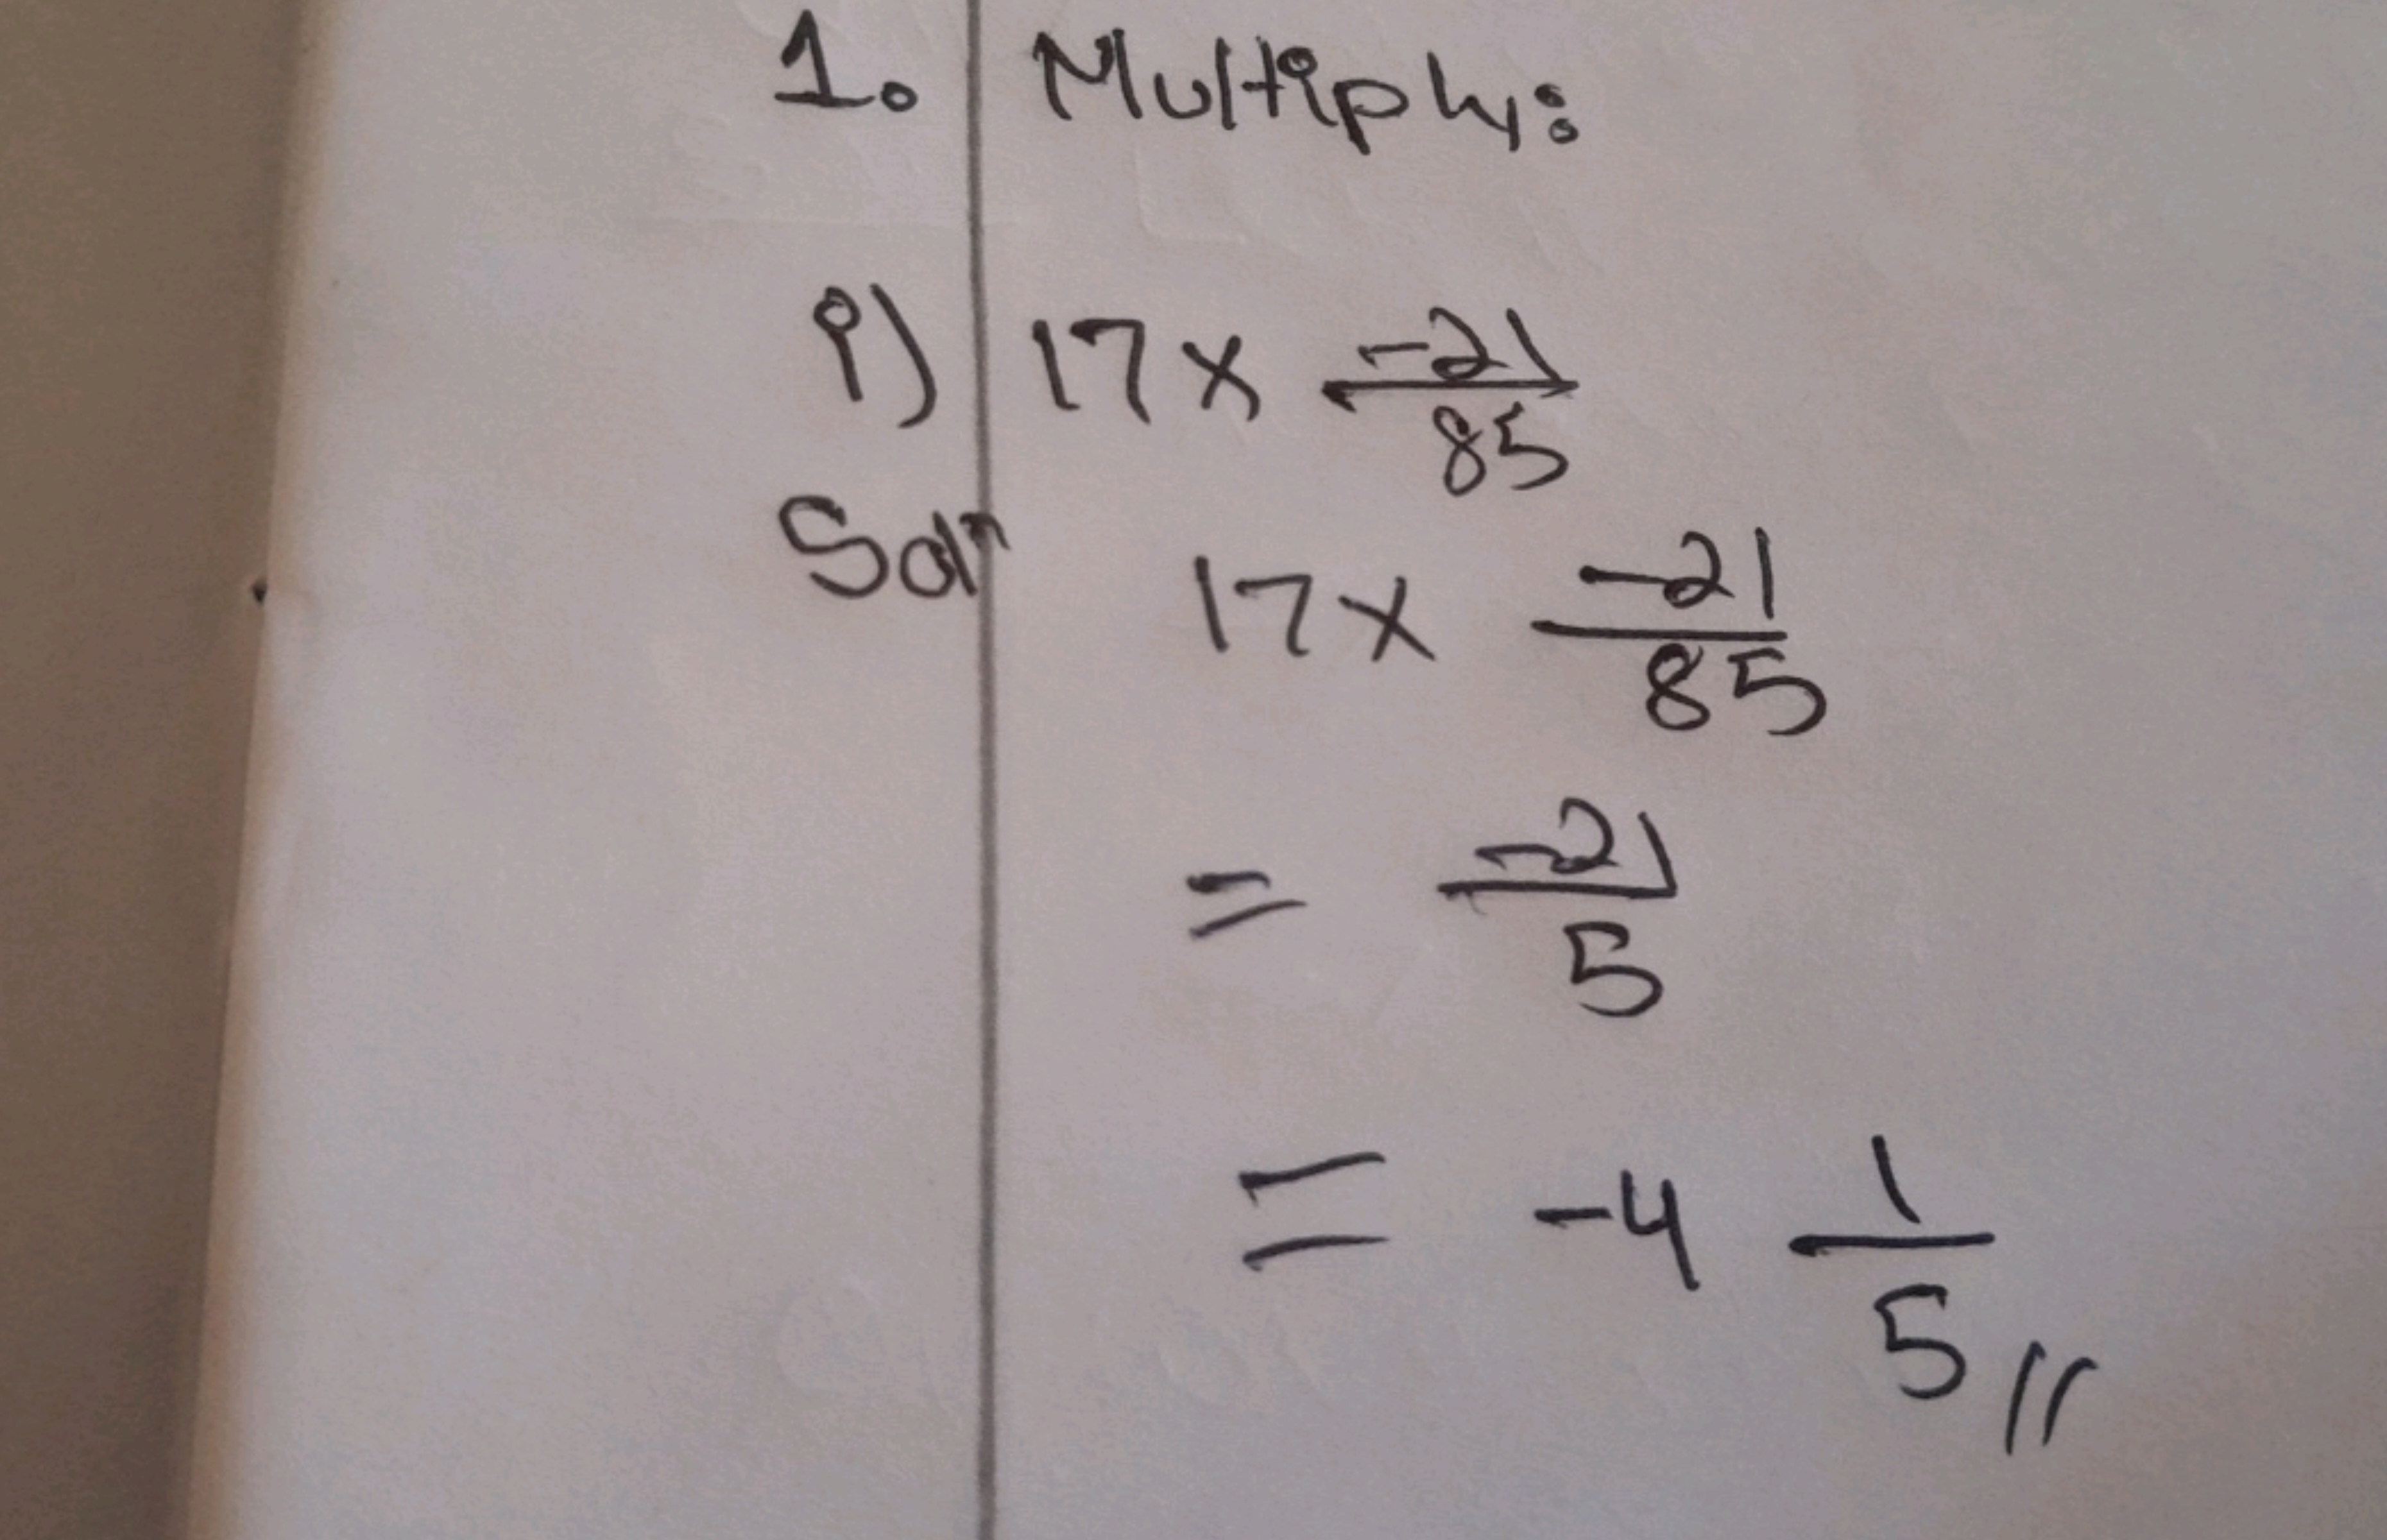 1. Multiply:
i) 17 x -21/85
Solⁿ
17 x -21/85
= -21/5
= -4 1/5 //